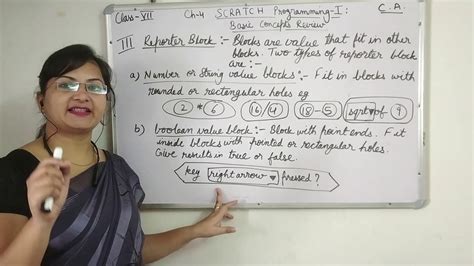 Class- VII Ch-4 SCRATCH Programming-I: C.A.
Basic Concepts Review
III Reporter Block:- Blocks are value that fit in other
blocks. Two types of reporter block
are:-
a) Number or String value blocks:- Fit in blocks with
rounded or rectangular holes eg
2 * 6 16/4 18-5 sqrt of 9
b) boolean value block:- Block with point ends. Fit
inside blocks with pointed or rectangular holes.
Give results in true or false.
key right arrow pressed?